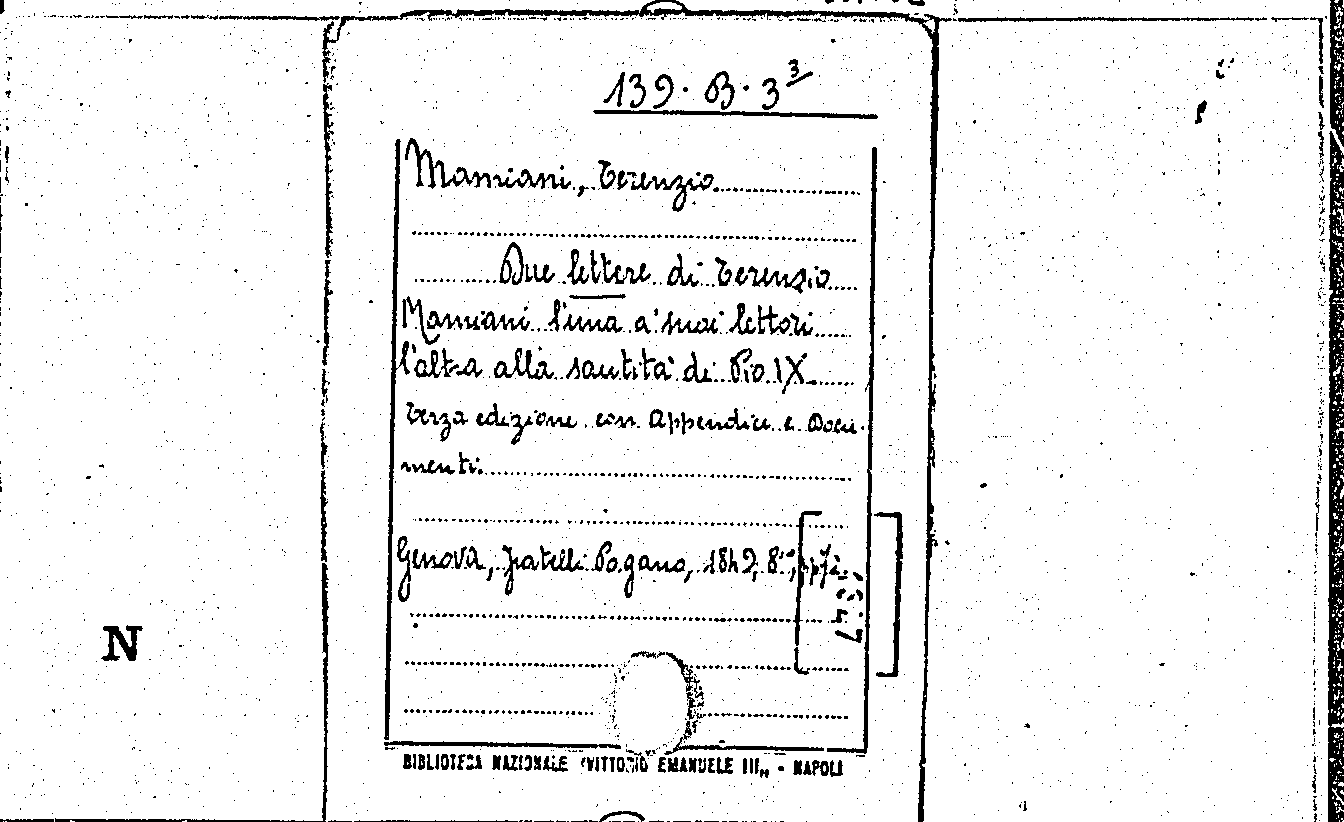 139. B. 3³
Mamiani, Terenzio
Due lettere di Terenzio
Mamiani l'una a' suoi lettori
l'altra alla santità di Pio IX
Terza edizione con Appendice e Docu-
menti.
Genova, fratelli Pagano, 1849, 8°,
N
BIBLIOTECA NAZIONALE "VITTORIO EMANUELE III„ - NAPOLI